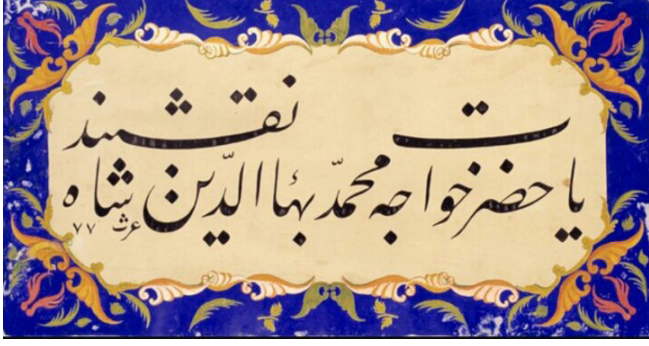 يا حضرت خواجه محمّد بهاء الدّين شاه نقشبند
٧٧